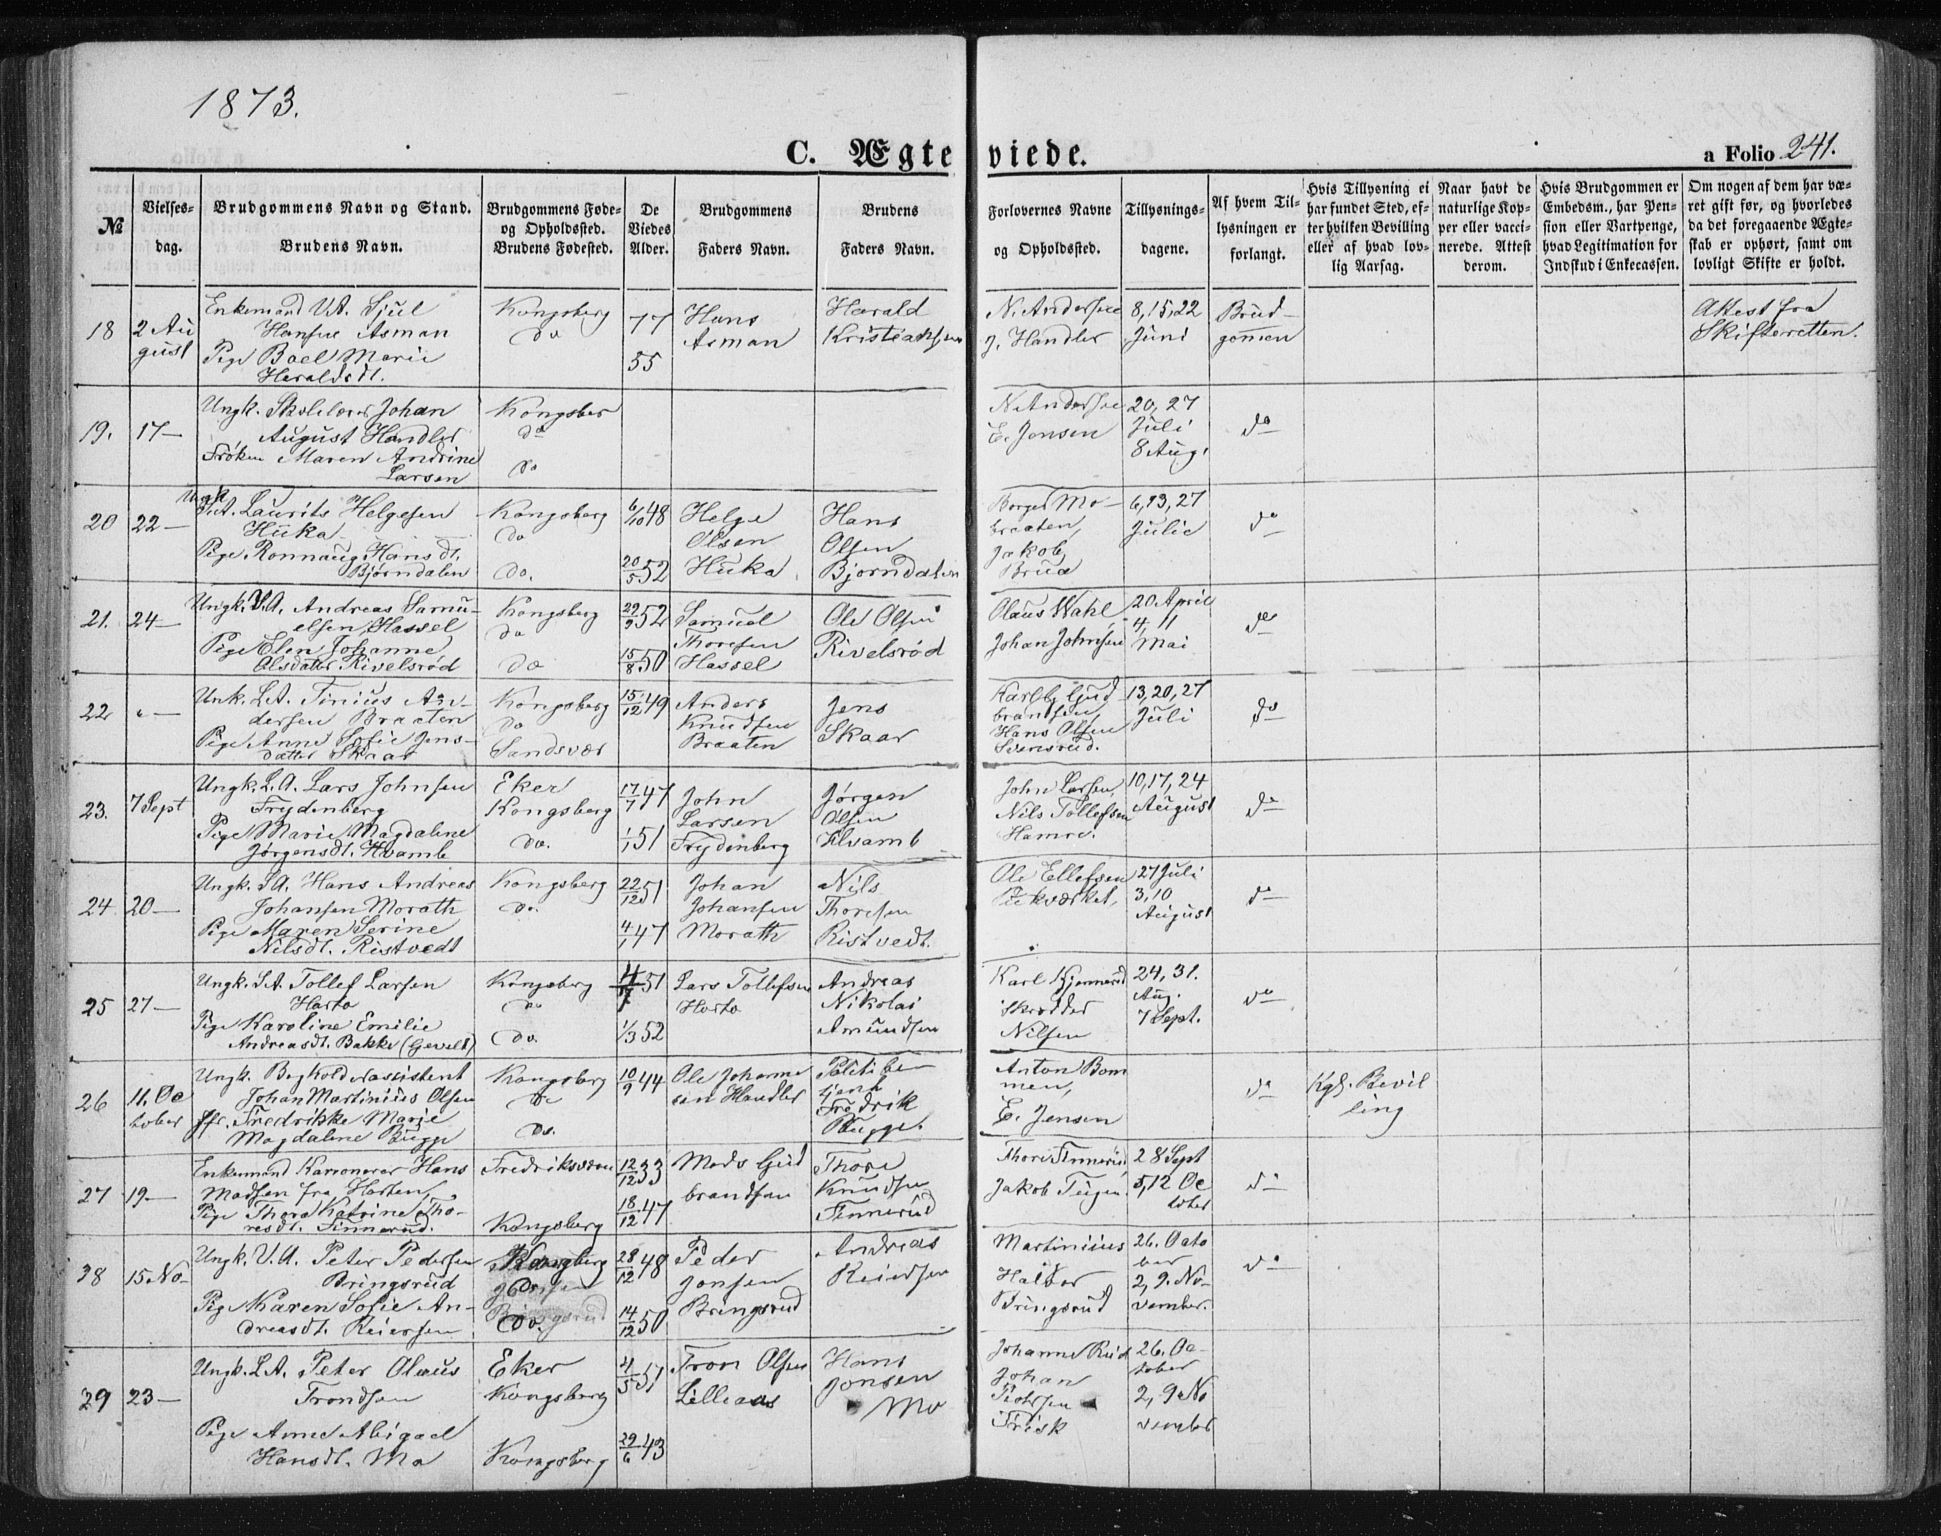 1873.
C. Ægteviede.
a Folio 241.
№
Vielses-
dag.
Brudgommens Navn og Stand.
Brudens Navn.
Brudgommens Føde-
og Opholdssted.
Brudens Fødested.
De
Viedes
Alder.
Brudgommens
Faders Navn.
Brudens
Faders Navn.
Forlovernes Navne
og Opholdssted.
Tillysnings-
dagene.
Af hvem Til-
lysningen er
forlangt.
Hvis Tillysning ei
har fundet Sted, ef-
ter hvilken Bevilling
eller af hvad lov-
lig Aarsag.
Naar havt de
naturlige Kop-
per eller vacci-
nerede. Attest
derom.
Hvis Brudgommen er
Embedsm., har Pen-
sion eller Vartpenge,
hvad Legitimation for
Indskud i Enkecassen.
Om nogen af dem har væ-
ret gift før, og hvorledes
da det foregaaende Ægte-
skab er ophørt, samt om
lovligt Skifte er holdt.
18
2 Au
gust
Enkemand V.A. Sjul
Hansen Asman
Pige Boel Marie
Heraldsdt.
Kongsberg
do
77
55
Hans
Asman
Harald
Kristiansen
N. Andersen
J. Handler
8, 15, 22
Juni
Brud-
gomen
Attest fra
Skifteretten.
19.
17 —
Ungk. Skolelærer Johan
August Handler
Frøken Maren Andrine
Larsen
Kongsber
do
do
N. Andersen
E. Jensen
20, 27
Juli
8 Aug.
do
20
22 —
Ungk
V.A. Laurits Helgesen
Huka
Pige Ronnaug Hansdt.
Bjørndalen
Kongsberg
do
do.
6/10 48
20/5 52
Helge
Olsen
Huka
Hans
Olsen
Bjorndalen
Borger Mo-
braaten,
Jakob
Brua
6, 13, 27
Julie
do
21.
24 —
Ungk. V.A. Andreas Samu-
elsen Hassel
Pige Elen Johanne
Olsdatter Rivelsrød
Kongsberg
do
do
29/9 52
15/8 50
Samuel
Thoresen
Hassel
Ole Olsen
Rivelsrød
Olaus Wahl
Johan Johnsen
20 April
4, 11
Mai
do
22
" —
Unk. L.A. Tinius An-
dersen Braaten
Pige Anne Sofie Jens-
datter Skaar
Kongsberg
do
Sandsvær
15/12 49
Anders
Knudsen
Braaten
Jens
Skaar
Karl Gud
brandsen,
Hans Olsen
Svensrud.
13, 20, 27
Juli
do
23.
7 Sept
Ungk. L.A. Lars Johnsen
Frydenberg
Pige Marie Magdalene
Jørgensdt. Hvamb
Eker
Kongsberg
do.
17/7 47
1/1 51
John
Larsen
Frydenberg
Jørgen
Olsen
Hvamb
John Larsen,
Nils Tollefsen
Hamre.
10, 17, 24
August
do
24
20 —
Ungk. L.A. Hans Andreas
Johansen Morath
Pige Maren Serine
Nilsdt. Ristvedt
Kongsberg
do.
22/12 51
4/1 47
Johan
Johansen
Morath
Nils
Thoresen
Ristvedt.
Ole Ellefsen
Pukværket,
27 Juli
3, 10
August
do
25
27 —
Ungk. L.A. Tollef Larsen
Horto
Pige Karoline Emilie
Andreasdt. Bakke (Gevelt)
Kongsberg
do
do.
4/7 51
1/3 52
Lars Tollefsen
Horto
Andreas
Nikolai
Amundsen
Karl Kjennerud
Skrædder
Nilsen
24, 31.
Aug.
7 Sept.
do
26
11. Oc
tober
Ungk. Bogholderassistent
Johan Martinius Olsen
Frk. Fredrikke Marie
Magdalene Bugge
Kongsberg
do
do.
10/9 44
Ole Johanne
sen Handler
Politibe
tjent
Fredrik
Bugge.
Anton Bom
men,
E. Jensen
do
Kgl. Bevil
ling
27
19 —
Enkemand Kanoner Hans
Madsen fra Horten,
Pige Thora Katrine Tho-
resdt. Tinnerud.
Fredriksværn
Kongsberg
12/12 33
18/12 47
Mads Gud
brandsen
Thore
Knudsen
Tinnerud
Thore Tinnerud
Jakob Teigen
28 Sept
5, 12 Oc
tober
do
38
15 No-
Ungk. V.A. Peter Pedersen
Bringsrud
Pige Karen Sofie An-
dreasdt. Reiersen
Kongberg
do.
do.
28/12 48
14/12 50
Peder
Jonsen
Bringsrud
Andreas
Reiersen
Martinius
Halvor
Bringsrud
26. Octo
ber
2, 9. No-
vember.
do
39
23 —
Ungk. L.A. Peter Olaus
Trondsen
Pige Anne Abigael
Hansdt. Mo
Eker
Kongsberg
Kongsberg
4/5 51
29/6 43
Tron Olsen
Lilleaas
Hans
Jonsen
Mo
Johanne Rud
Johan
Petersen
Frisk
26. Oc-
tober
2, 9 No
vember